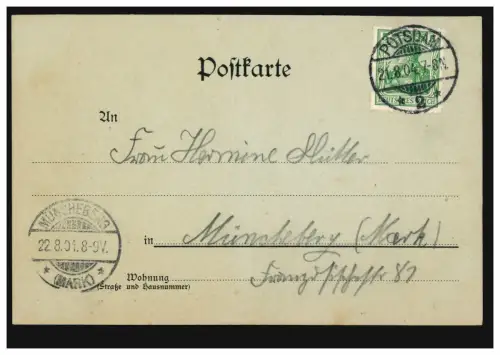 Postkarte
POTSDAM
21.8.04. 7-8V.
* 2 *
DEUTSCHES REICH
An
Frau Hermine Hütter
MÜNCHEBERG
22.8.04. 8-9V.
* (MARK) *
in Müncheberg (Mark)
Wohnung
(Straße und Hausnummer)
81